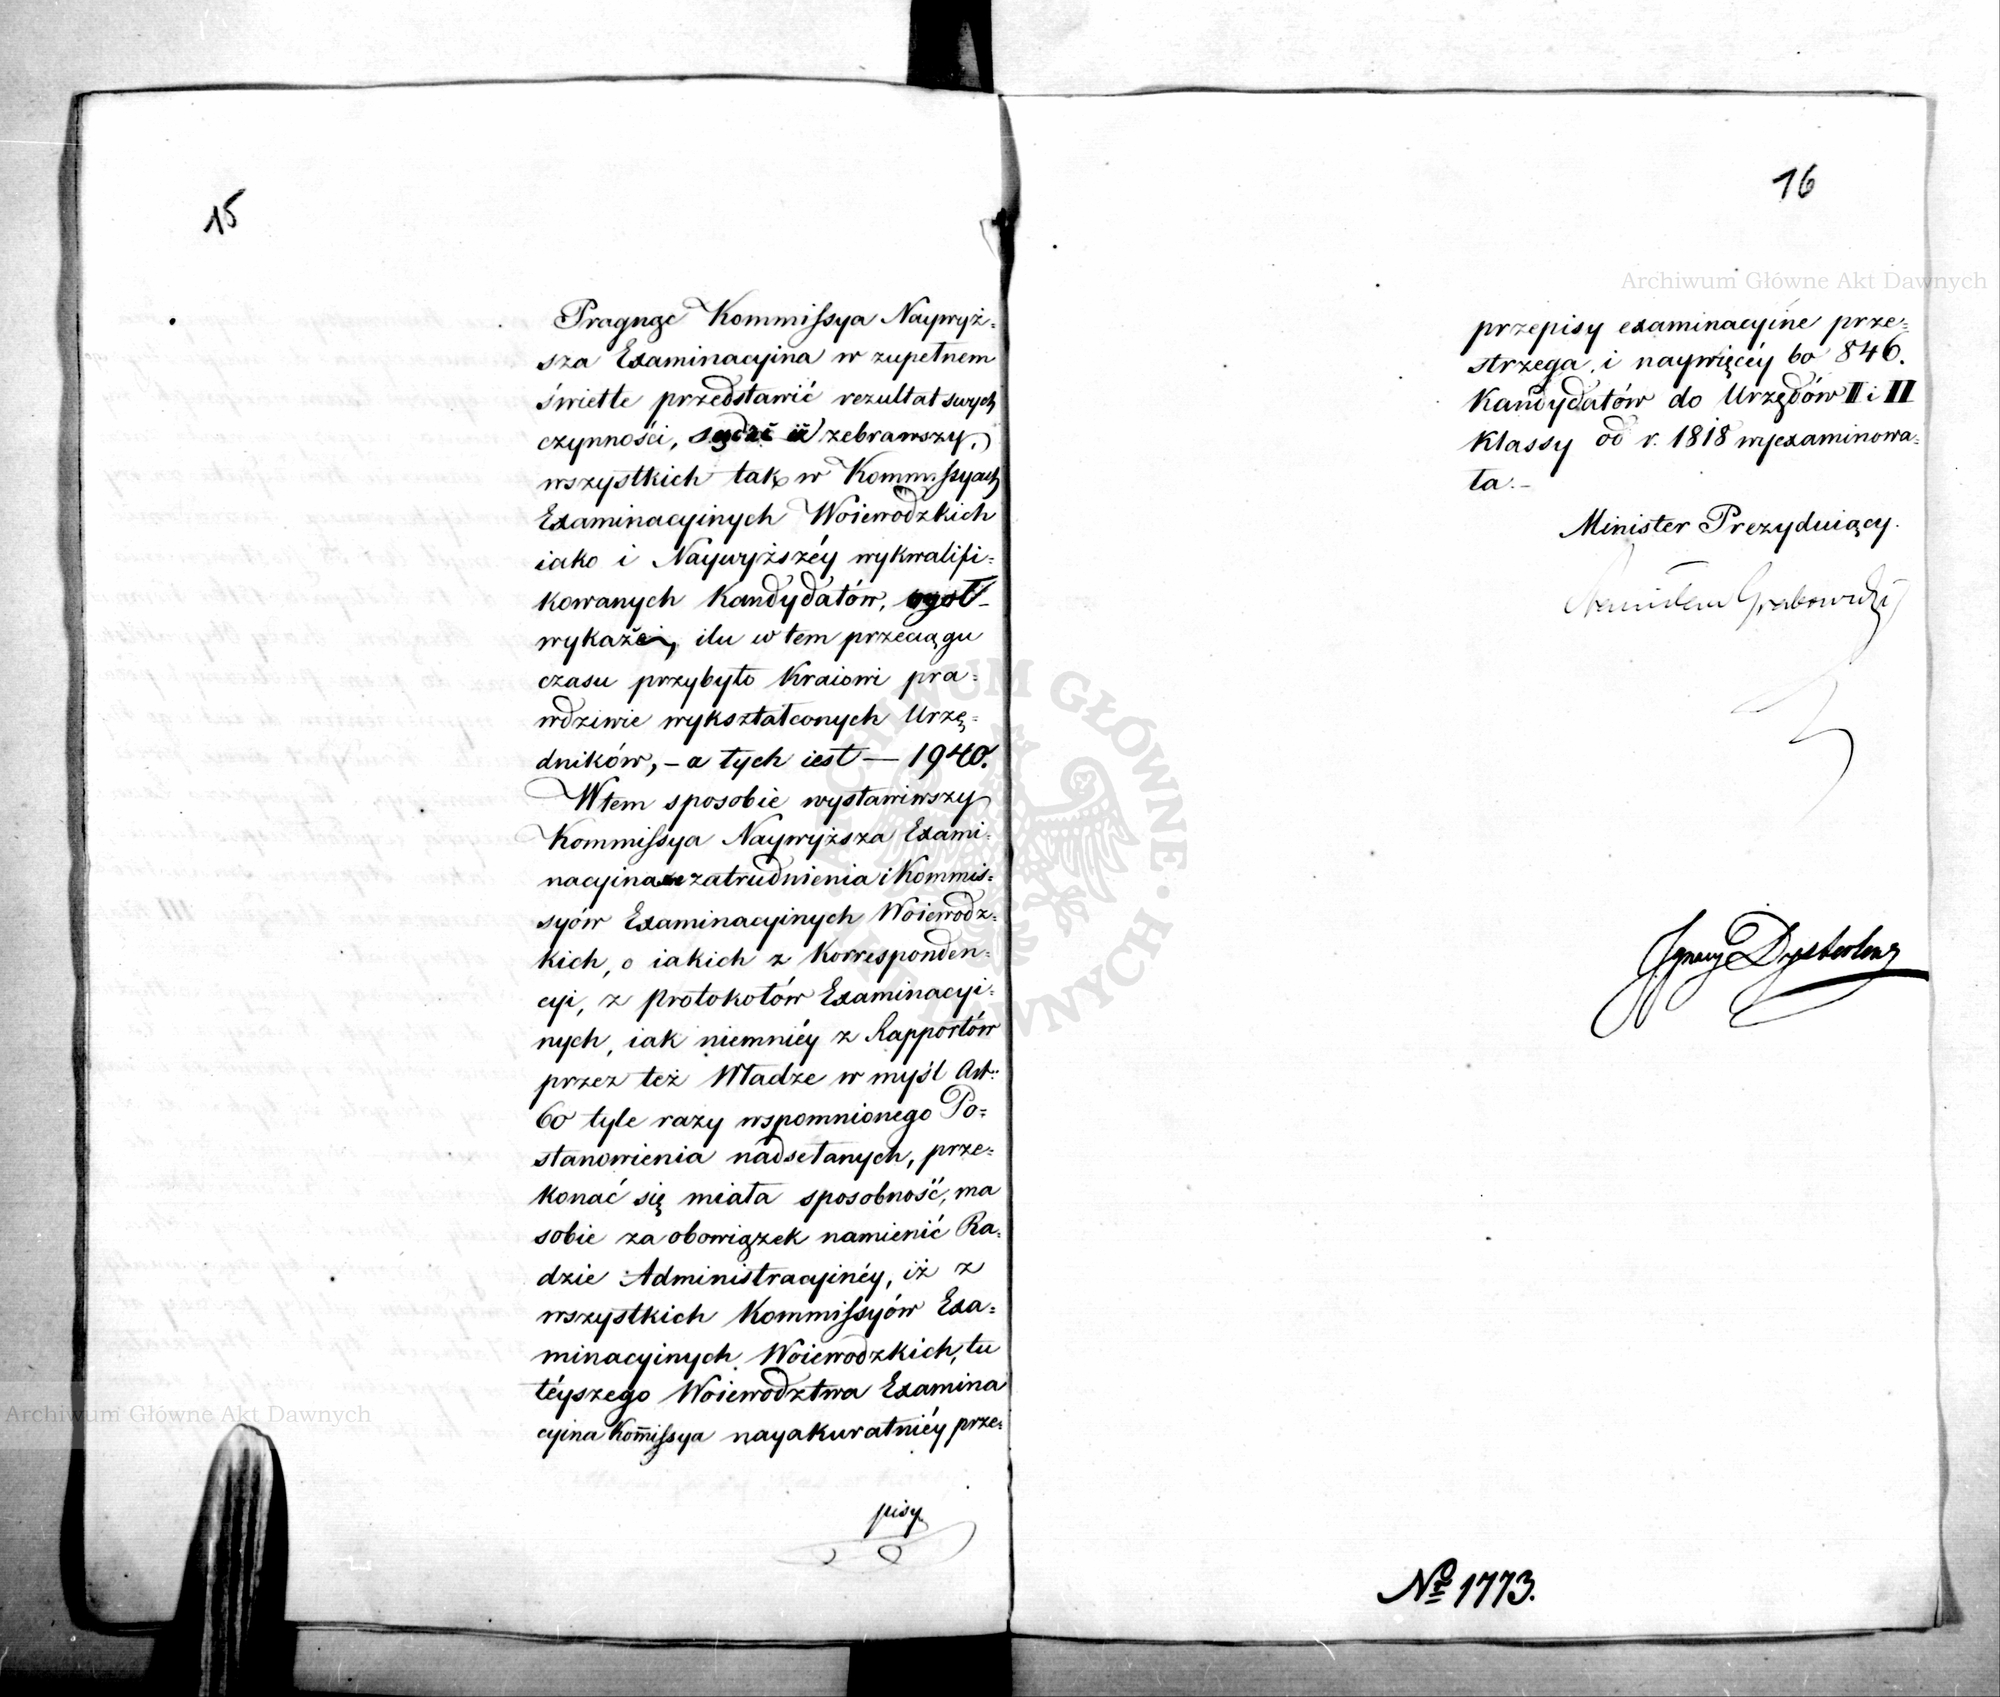 15
Pragnąc Kommissya Naywyż=
sza Examinacyina w zupełnem
świetle przedstawić rezultat swych
czynności, zebrawszy,
wszystkich tak w Kommissyach
Examinacyinych Woiewodzkich
iako i Naywyższéy wykwalifi=
kowanych Kandydatów,
wykaże, ilu w tem przeciągu
czasu przybyło Kraiowi pra=
wdziwie wykształconych Urzę=
dników, – a tych iest — 1940.
W tem sposobie wystawiwszy
Kommissya Naywyższa Exami=
nacyina zatrudnienia i Kommis=
syów Examinacyinych Woiewodz=
kich, o iakich z Korresponden=
cyi, z Protokołów Examinacyi=
nych, iak niemniéy z Rapportów
przez też Władze w myśl Art:
60 tyle razy wspomnionego Po=
stanowienia nadsełanych, prze=
konać się miała sposobność, ma
sobie za obowiązek namienić Ra=
dzie Administracyinéy, iż z
wszystkich Kommissyów Exa=
minacyinych Woiewodzkich, tu
téyszego Woiewodztwa Examina
cyina Kom̄issya nayakuratniéy prze=
pisy
16
przepisy examinacyine prze=
strzega, i naywięcéy bo 846.
Kandydatów do Urzędów II i III
Klassy od r. 1818 wyexaminowa=
ła.–
Minister Prezyduiący.
Stanisław Grabowski
Ignacy
No 1773.
Archiwum Główne Akt Dawnych
Archiwum Główne Akt Dawnych
ARCHIWUM GŁÓWNE AKT DAWNYCH